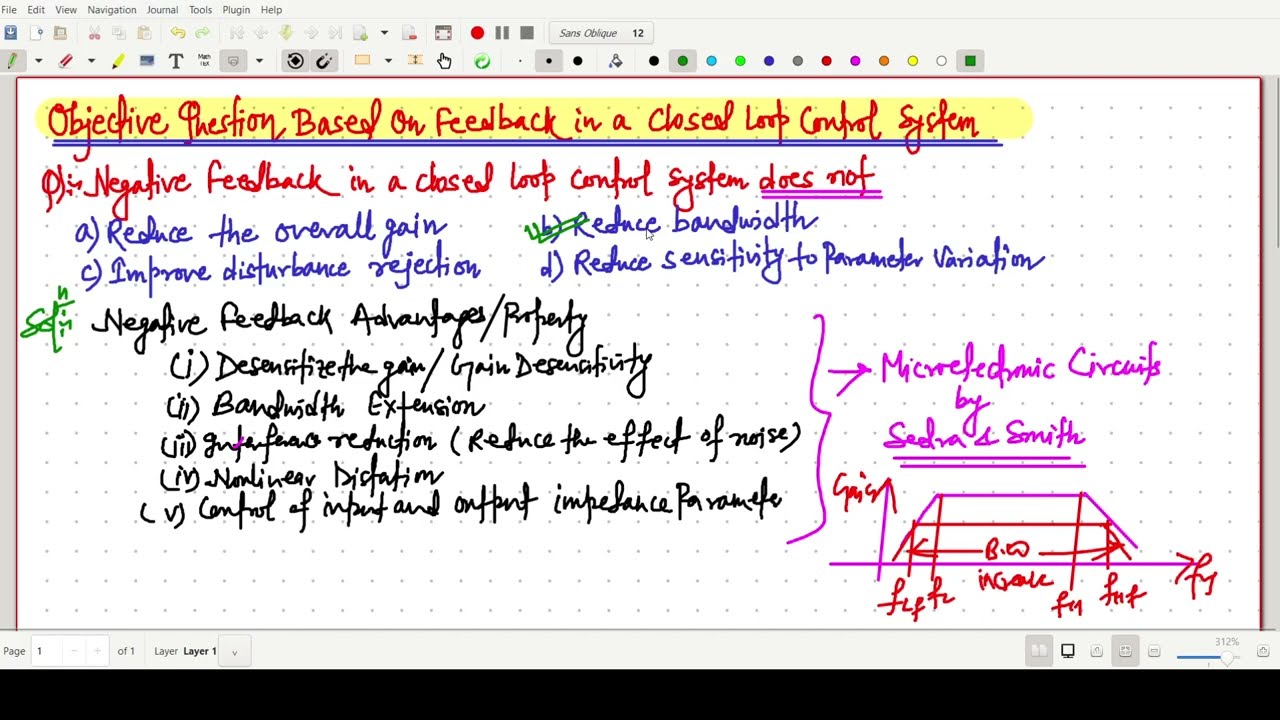 File Edit View Navigation Journal Tools Plugin Help
Sans Oblique 12
T Math TEX
Objective Question Based On Feedback in a Closed Loop Control System
Q):- Negative feedback in a closed loop control system does not
a) Reduce the overall gain
b) Reduce bandwidth
c) Improve disturbance rejection
d) Reduce sensitivity to Parameter Variation
Sol^n:- Negative Feedback Advantages/Property
(i) Desensitize the gain/Gain Desensitivity
(ii) Bandwidth Extension
(iii) Interference reduction (Reduce the effect of noise)
(iv) Nonlinear Distation
(v) Control of input and output impedance Paramete
→ Microelectronic Circuits
by
Sedra & Smith
Gain
B.W
increase
fLf fL fH fHf
Page 1 of 1 Layer Layer 1
312%